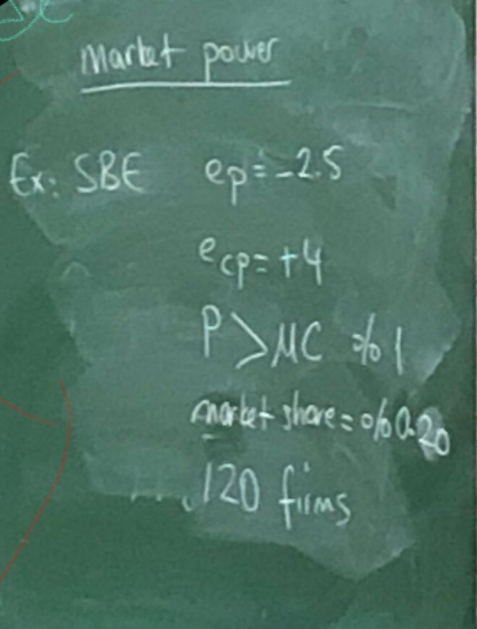 Market power
Ex: SBE ep = -2.5
ecp = +4
P > MC %1
market share = %0.20
120 firms